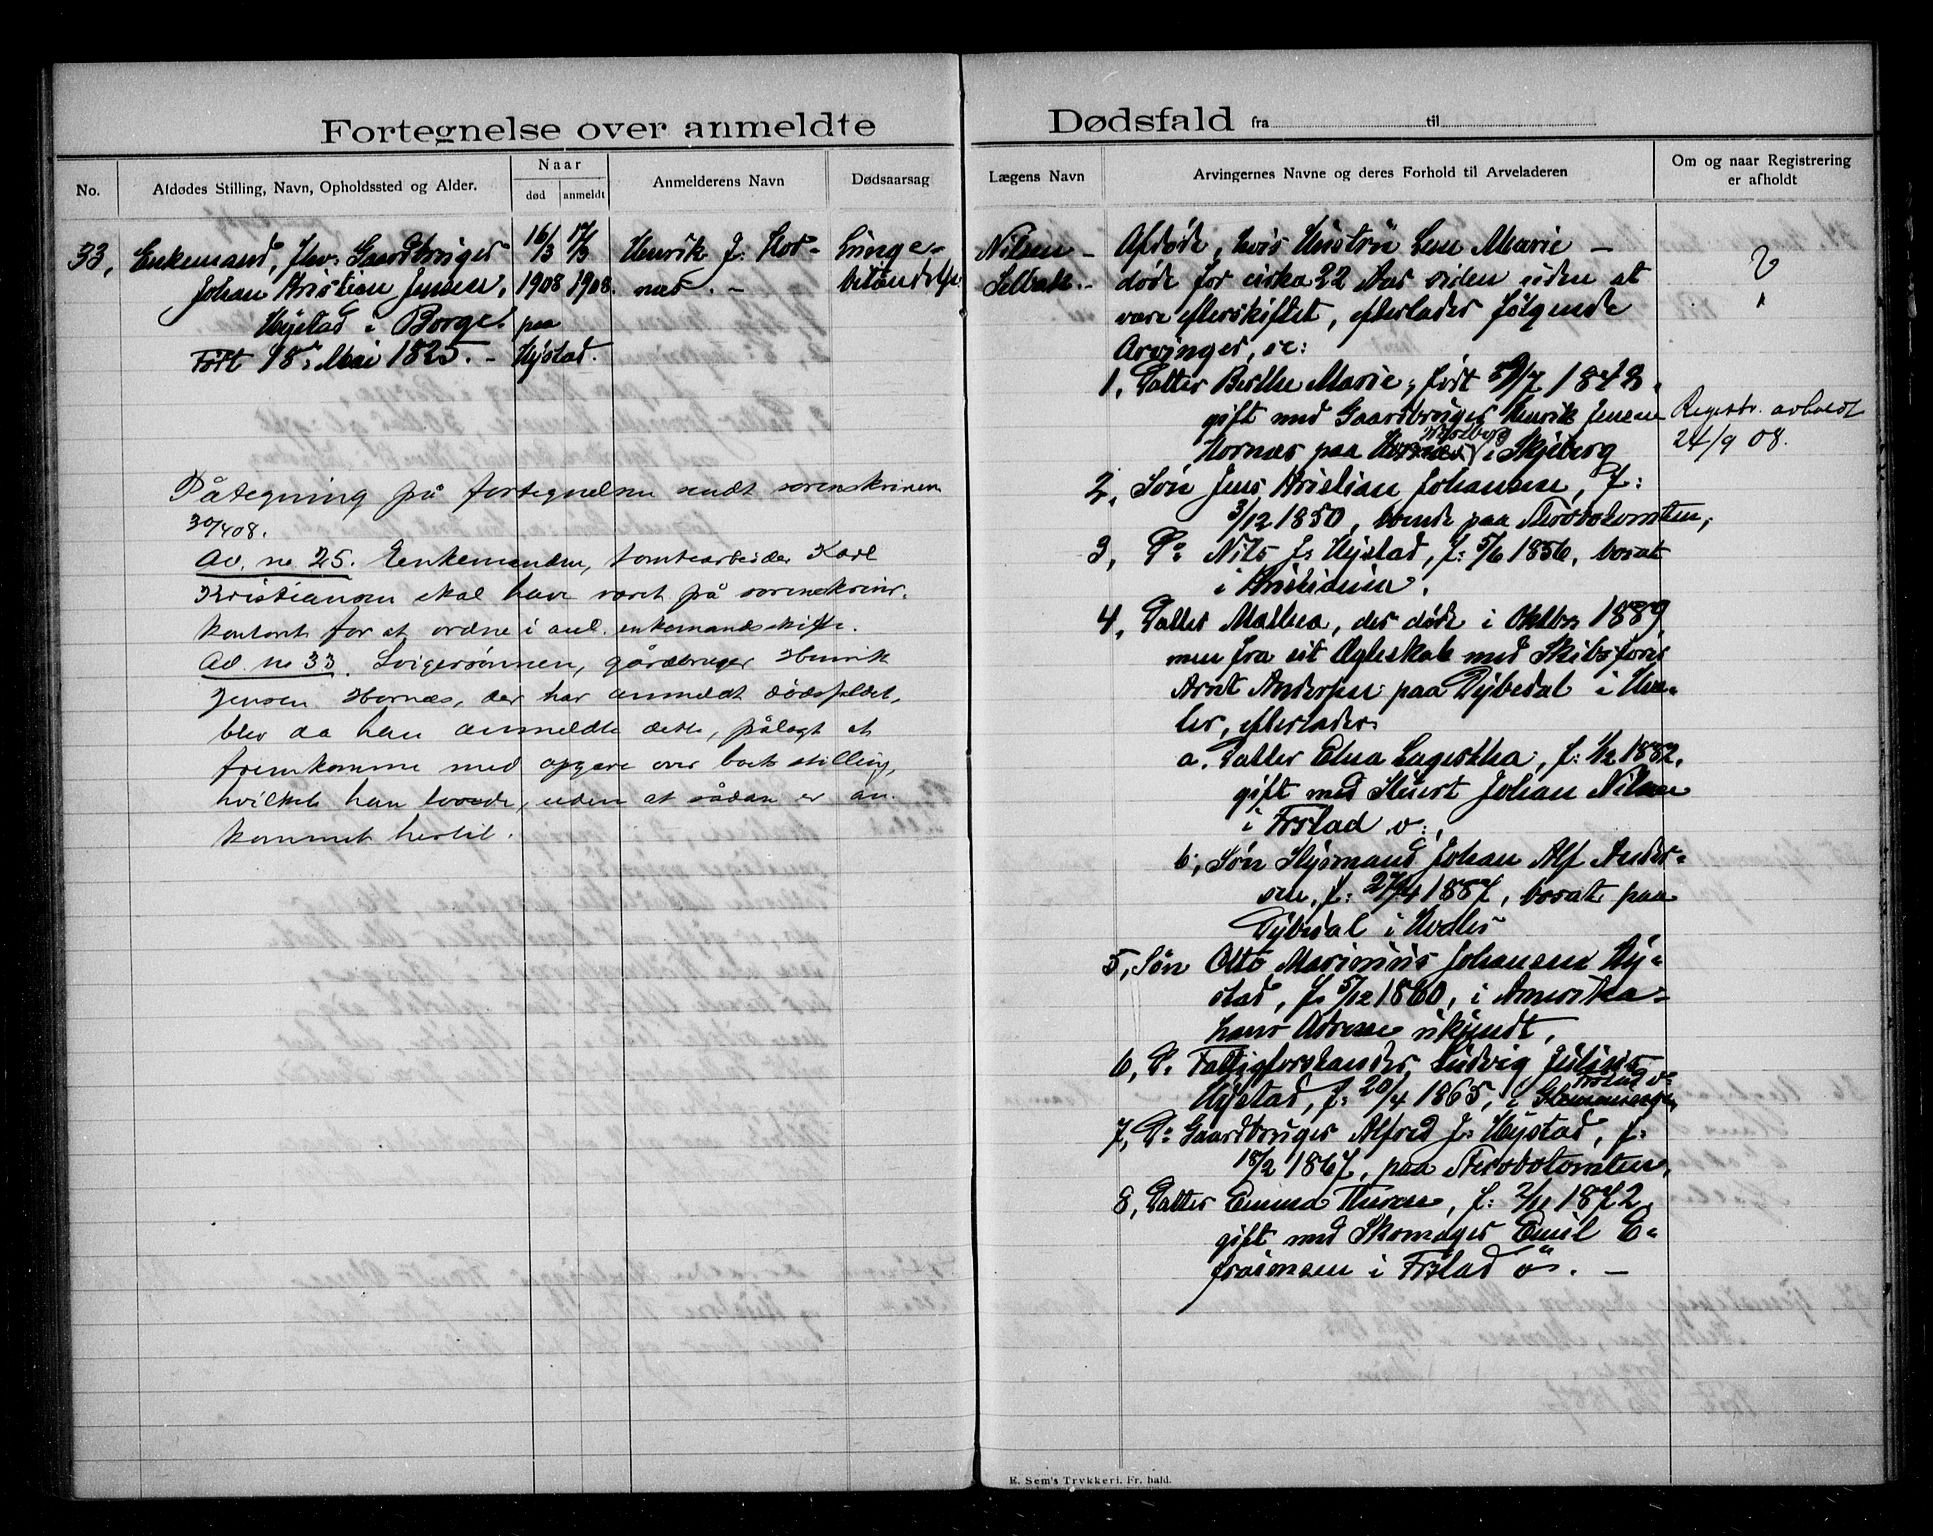 Fortegnelse over anmeldte Dødsfald fra til
No.
Afdødes Stilling, Navn, Opholdssted og Alder.
Naar
død
anmeldt
Anmelderens Navn
Dødsaarsag
Lægens Navn
Arvingernes Navne og deres Forhold til Arveladeren
Om og naar Registrering
er afholdt
33, Enkemand, fhv. Gaardbruger
Johan Kristian Jensen,
Hystad i Borge.
Født 18. Mai 1825. –
16/3
1908
paa
Hystad.
17/3
1908.
Henrik J. Hor-
næs. –
Lunge-
betændelse
Nilsen –
Selbak. –
Påtegning på fortegnelsen sendt sorenskriveren
30/4 08.
Ad. no 25. Enkemanden, tomtearbeider Karl
Kristiansen skal have været på sorenskriver-
kontoret for at ordne i anl. enkemandsskifte.
Ad. no 33. Svigersønnen, gårdbruger Henrik
Jensen Hornæs, der har anmeldt dødsfaldet,
blev da han anmeldte dette, pålagt at
fremkomme med opgave over boets stilling,
hvilket han lovede, uden at sådan er an-
kommet hertil.
Afdøde, hvis Hustru Lene Marie –
døde for cirka 22 Aar siden uden at
være efterskiftet, efterlader følgende
Arvinger, se:
1, Datter Berthe Marie, født /7 1848.
gift med Gaardbruger Henrik Jensen
Hornæs paa i Skjeberg
2, Søn Jens Kristian Johansen, f:
3/12 1850, boende paa Torsbotomten,
3, Do Nils J. Hystad, f: 5/6 1856, bosat
i Kristiania.
4, Datter Mathea, der døde i Oktbr 1889,
men fra sit Ægteskab med Skibsfører
Arnt Andersen paa Dybedal i Hva-
ler, efterlader
a. Datter Elna Lagertha, f: 1/12 1882,
gift med Stuert Johan Nilsen
i Frstad o:,
b, Søn Styrmand Johan Alf Ander-
sen, f: 27/4 1887, bosat paa
Dybedal i Hvaler
5, Søn Otto Marinius Johansen Hy-
stad, f: 5/12 1860, i Amerika –
hans Adresse ukjendt,
6, Do Fattigforstander Ludvig Julius
Hystad, f: 20/4 1865, i Frstad o:
7, Do Gaardbruger Alfred J. Hystad, f:
18/2 1867, paa Torsbotomten,
8, Datter Emma Therese, f: 2/11 1872,
gift med Skomager Emil E-
fraimsen i Frstad o:. –
Registr. avholdt
24/9 08.
E. Sem's Trykkeri, Fr. hald.